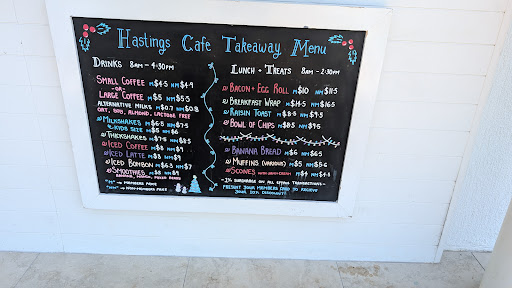 Hastings Cafe Takeaway Menu
DRINKS 8am - 4:30pm
SMALL COFFEE M$4.5 NM$4.9
-OR-
LARGE COFFEE M$5 NM$5.5
ALTERNATIVE MILKS M$0.7 NM$0.8
OAT, SOY, ALMOND, LACTOSE FREE
MILKSHAKES M$6.8 NM$7.5
KIDS SIZE M$5
THICKSHAKES
ICED COFFEE M$8 NM$9
ICED LATTE M$8 NM$9
ICED BONBON M$6.3 NM$7
SMOOTHIES M$8 NM$9
"M" = MEMBERS PRICE
"NM" = NON-MEMBER PRICE
LUNCH + TREATS 8am - 2:30pm
BACON + EGG ROLL M$10 NM$11
BREAKFAST WRAP M$14.5 NM$16.5
RAISIN TOAST M$8.5 NM$9.5
BOWL OF CHIPS M$8.5 NM$9.5
BANANA BREAD M$6 NM$6.5
MUFFINS (VARIOUS) M$5 NM$5.5
SCONES WITH JAM + CREAM
SURCHARGE ON ALL EFTPOS TRANSACTIONS
PRESENT YOUR MEMBERS CARD TO RECIEVE
YOUR 10% DISCOUNT!